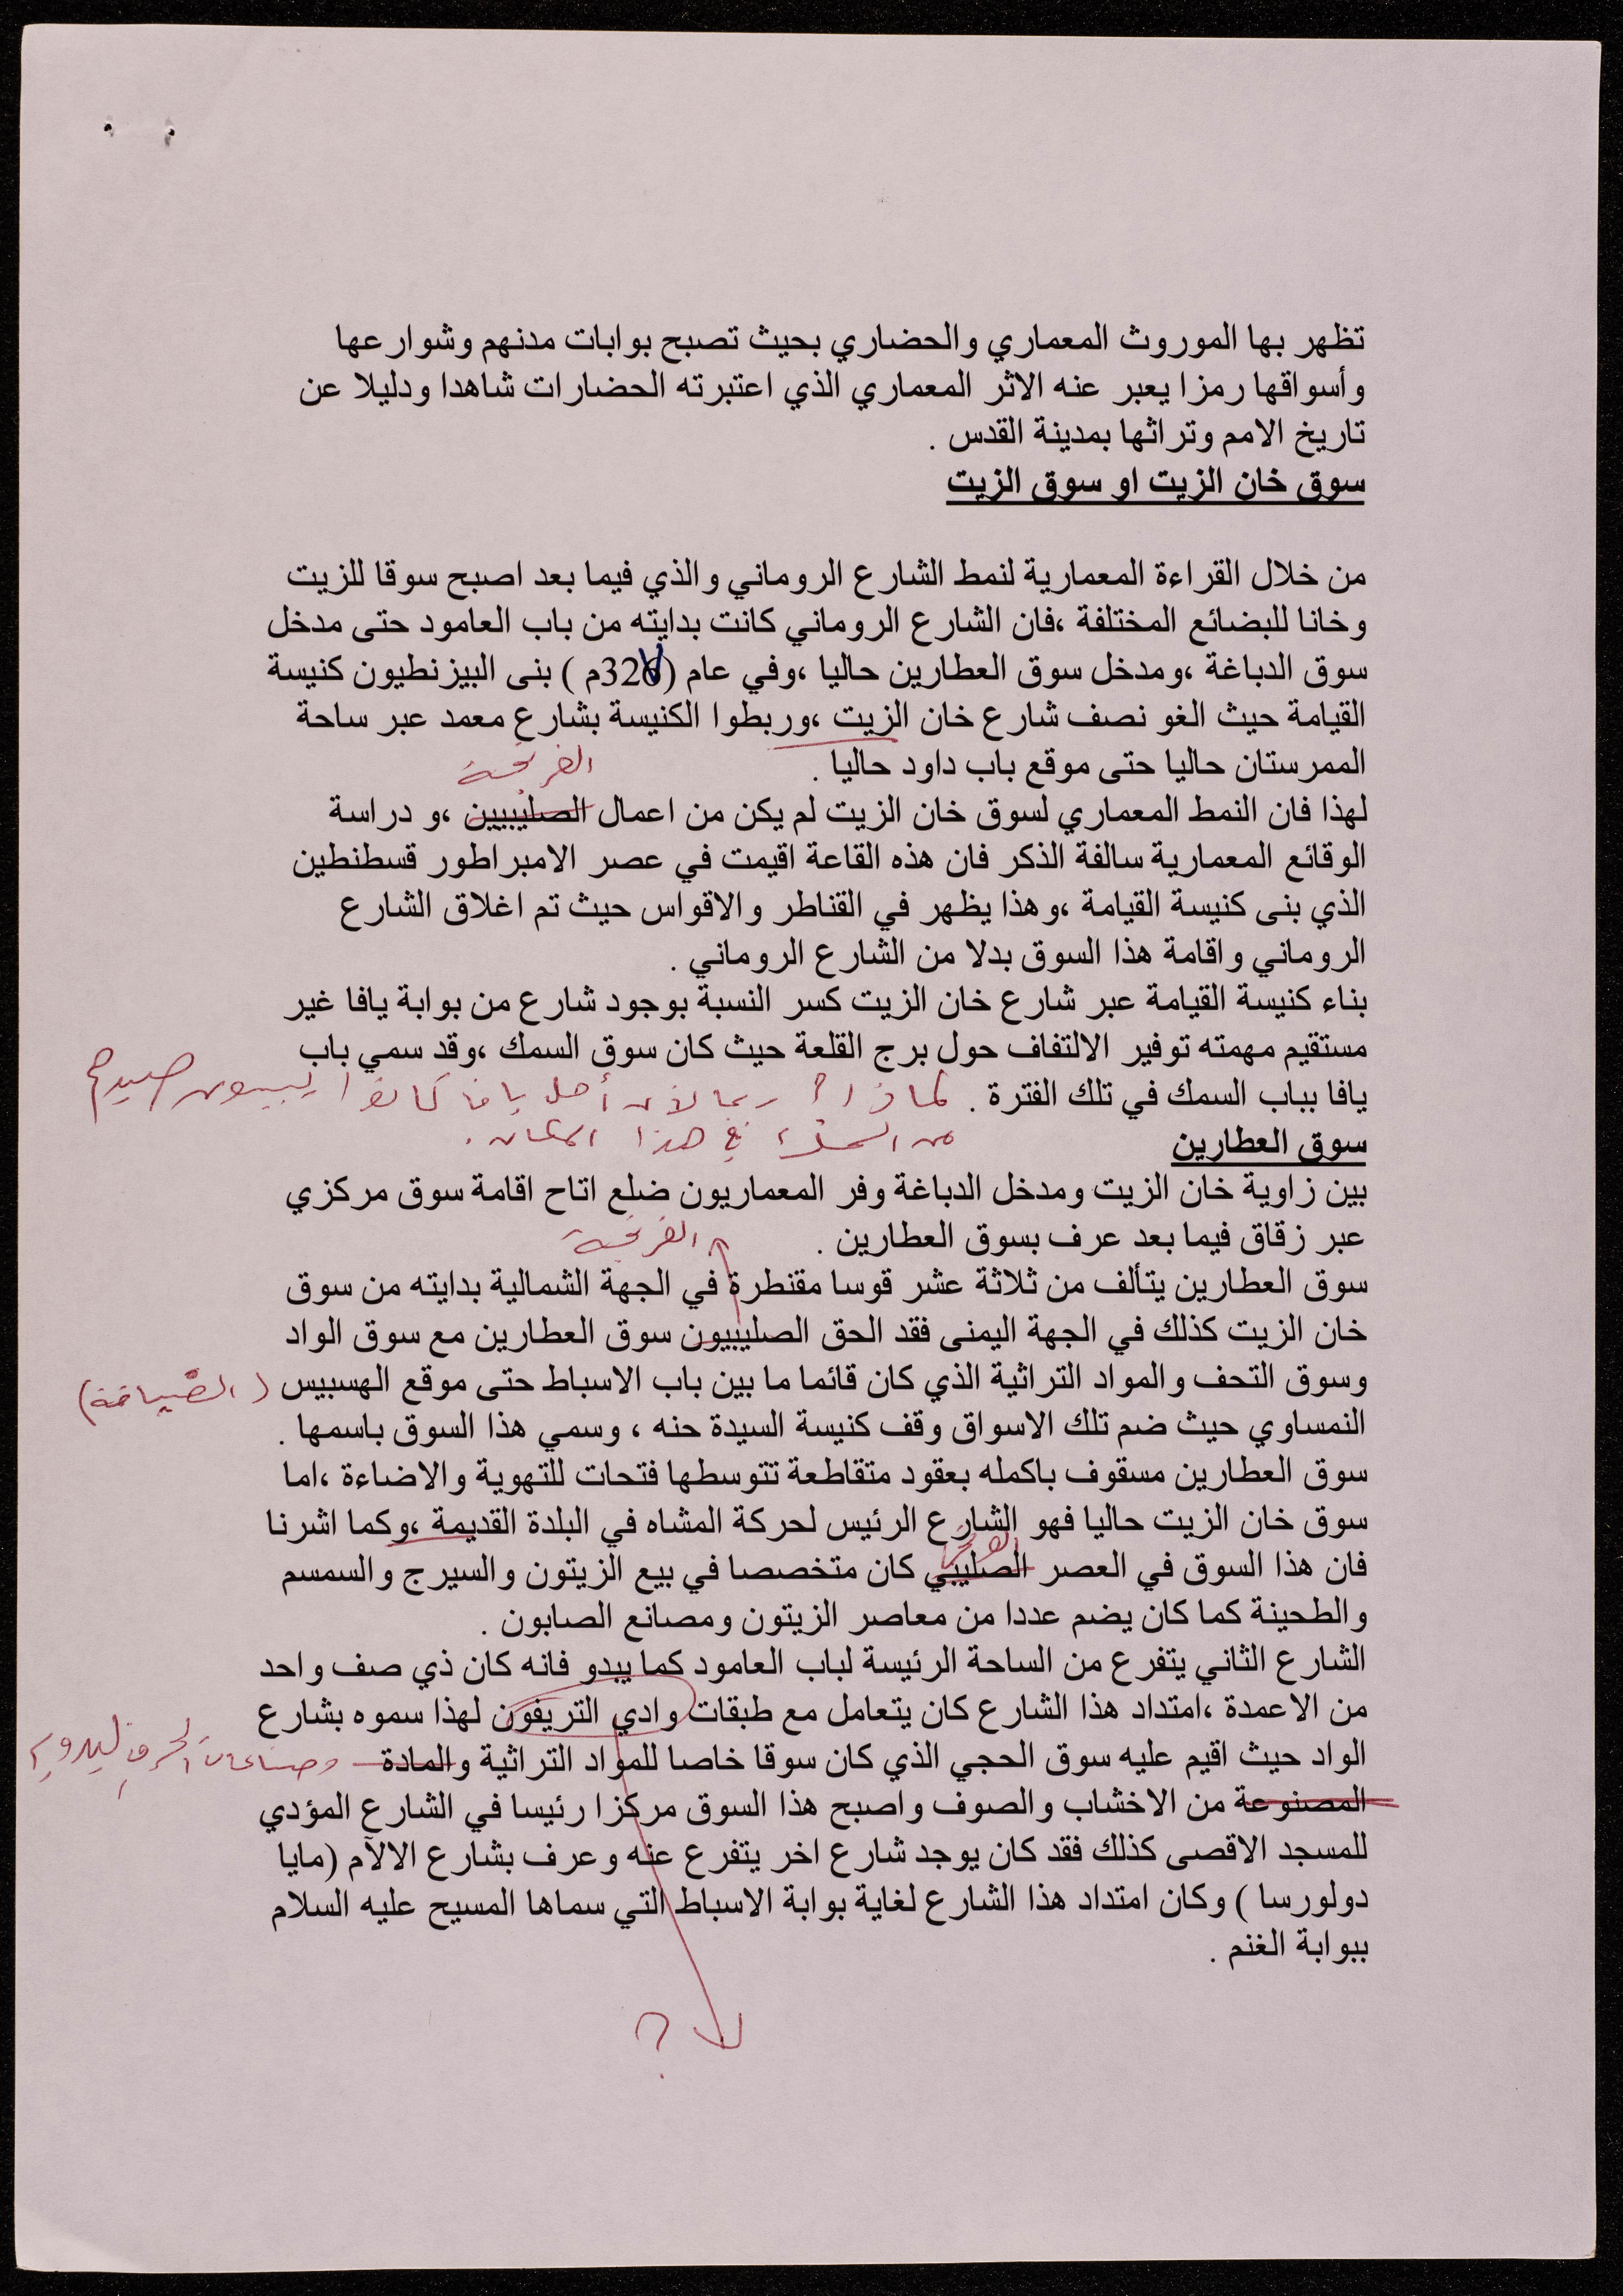 تظهر بها الموروث المعماري والحضاري بحيث تصبح بوابات مدنهم وشوارعها
وأسواقها رمزا يعبر عنه الاثر المعماري الذي اعتبرته الحضارات شاهدا ودليلا عن
تاريخ الامم وتراثها بمدينة القدس .
سوق خان الزيت او سوق الزيت
من خلال القراءة المعمارية لنمط الشارع الروماني والذي فيما بعد اصبح سوقا للزيت
وخانا للبضائع المختلفة ،فان الشارع الروماني كانت بدايته من باب العامود حتى مدخل
سوق الدباغة ،ومدخل سوق العطارين حاليا ،وفي عام (326م ) بنى البيزنطيون كنيسة
القيامة حيث الغو نصف شارع خان الزيت ،وربطوا الكنيسة بشارع معمد عبر ساحة
الممرستان حاليا حتى موقع باب داود حاليا .
الفرنجة
لهذا فان النمط المعماري لسوق خان الزيت لم يكن من اعمال الصليبيين ،و دراسة
الوقائع المعمارية سالفة الذكر فان هذه القاعة اقيمت في عصر الامبراطور قسطنطين
الذي بنى كنيسة القيامة ،وهذا يظهر في القناطر والاقواس حيث تم اغلاق الشارع
الروماني واقامة هذا السوق بدلا من الشارع الروماني .
بناء كنيسة القيامة عبر شارع خان الزيت كسر النسبة بوجود شارع من بوابة يافا غير
مستقيم مهمته توفير الالتفاف حول برج القلعة حيث كان سوق السمك ،وقد سمي باب
يافا بباب السمك في تلك الفترة . لماذا ؟ ربما لأن أهل يافا كانوا يبيعون صيدهم
من السمك في هذا المكان .
سوق العطارين
بين زاوية خان الزيت ومدخل الدباغة وفر المعماريون ضلع اتاح اقامة سوق مركزي
عبر زقاق فيما بعد عرف بسوق العطارين .
الفرنجة
سوق العطارين يتألف من ثلاثة عشر قوسا مقنطرة في الجهة الشمالية بدايته من سوق
خان الزيت كذلك في الجهة اليمنى فقد الحق الصليبيون سوق العطارين مع سوق الواد
وسوق التحف والمواد التراثية الذي كان قائما ما بين باب الاسباط حتى موقع الهسبيس (الضيافة)
النمساوي حيث ضم تلك الاسواق وقف كنيسة السيدة حنه ، وسمي هذا السوق باسمها .
سوق العطارين مسقوف باكمله بعقود متقاطعة تتوسطها فتحات للتهوية والاضاءة ،اما
سوق خان الزيت حاليا فهو الشارع الرئيس لحركة المشاه في البلدة القديمة ،وكما اشرنا
فان هذا السوق في العصر الصليبي كان متخصصا في بيع الزيتون والسيرج والسمسم
والطحينة كما كان يضم عددا من معاصر الزيتون ومصانع الصابون .
الشارع الثاني يتفرع من الساحة الرئيسة لباب العامود كما يبدو فانه كان ذي صف واحد
من الاعمدة ،امتداد هذا الشارع كان يتعامل مع طبقات وادي التريفون لهذا سموه بشارع
الواد حيث اقيم عليه سوق الحجي الذي كان سوقا خاصا للمواد التراثية والمادة وصناعات الحرف اليدوية
المصنوعة من الاخشاب والصوف واصبح هذا السوق مركزا رئيسا في الشارع المؤدي
للمسجد الاقصى كذلك فقد كان يوجد شارع اخر يتفرع عنه وعرف بشارع الالآم (مايا
دولورسا ) وكان امتداد هذا الشارع لغاية بوابة الاسباط التي سماها المسيح عليه السلام
ببوابة الغنم .
؟